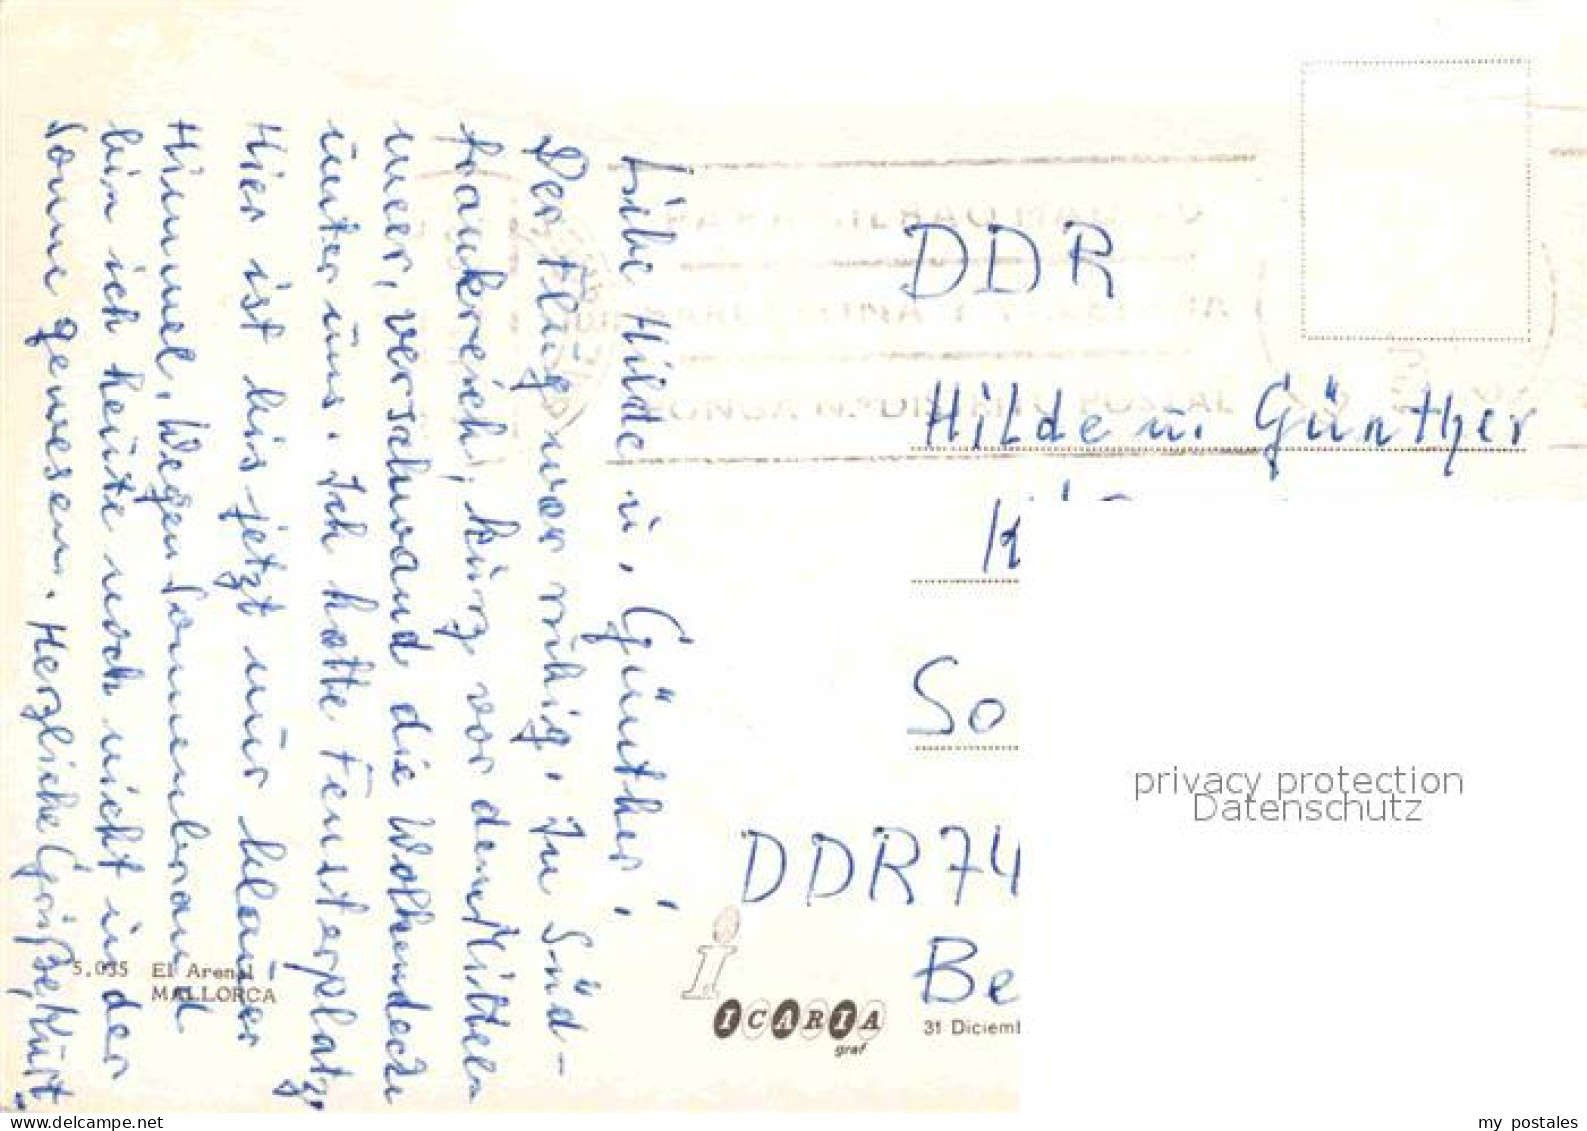 Liebe Hilde u. Günther!
Der Flug war ruhig. In Süd-
frankreich, kurz vor dem Mittel-
meer, verschwand die Wolkendecke
unter uns. Ich hatte Fensterplatz.
Hier ist bis jetzt nur blauer
Himmel. Wegen Sonnenbrand
bin ich heute noch nicht in der
Sonne gewesen. Herzliche Grüße, Kurt
DDR
Hilde u. Günther
K
So
DDR 74
Be
5.035 El Arenal
MALLORCA
i
ICARIA
graf
31 Diciem
PONGA DISTRITO POSTAL
privacy protection
Datenschutz
delcampe.net
my postales